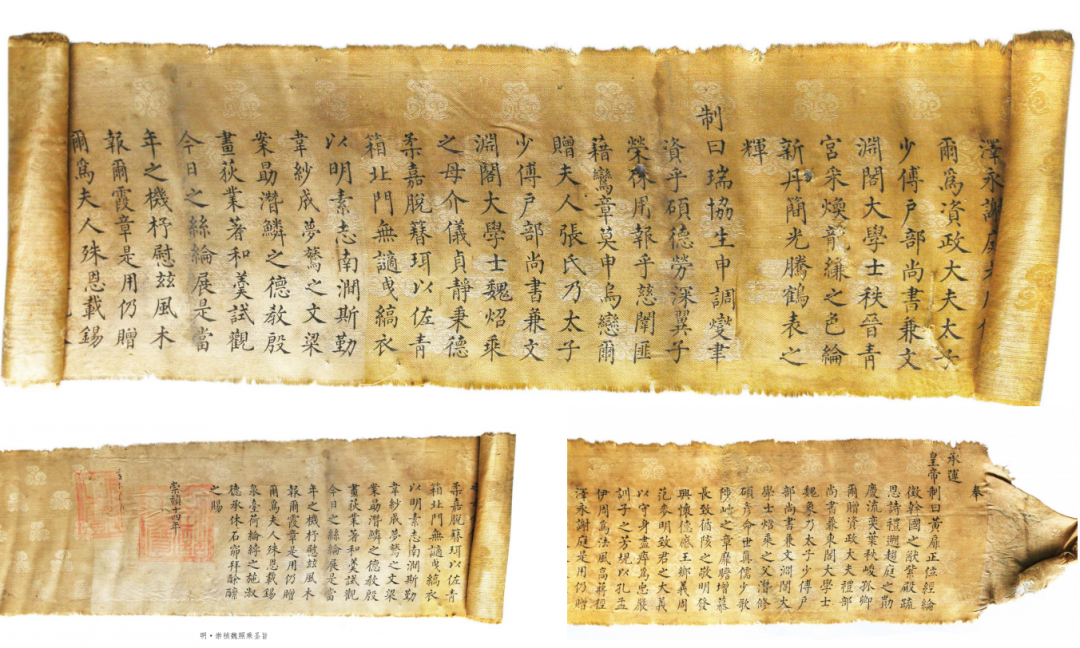 澤永謝庭
爾爲資政大夫太子
少傅戶部尚書兼文
淵閣大學士秩晉青
宮采煥龍緣之色綸
新丹簡光騰鶴表之
輝
制曰瑞協生申調燮聿
資乎碩德勞深翼子
榮休用報乎慈闈匪
藉鸞章莫申烏戀爾
贈夫人張氏乃太子
少傅戶部尚書兼文
淵閣大學士魏炤乘
之母介儀貞靜秉德
柔嘉脫簪珥以佐青
箱北門無讁曳縞衣
以明素志南澗斯勤
韋紗成夢鷟之文梁
案勗潛鱗之德教殷
畫荻業著和羹試觀
今日之絲綸展是當
年之機杼慰茲風木
報爾霞章是用仍贈
爾爲夫人殊恩載錫
柔嘉脫簪珥以佐青
箱北門無讁曳縞衣
以明素志南澗斯勤
韋紗成夢鷟之文梁
案勗潛鱗之德教殷
畫荻業著和羹試觀
今日之絲綸展是當
年之機杼慰茲風木
報爾霞章是用仍贈
爾爲夫人殊恩載錫
泉臺荷綸綍之施淑
德承休石窌拜酴
之賜
崇禎十四年
明·崇禎魏照乘圣旨
奉
承運
皇帝制曰黃扉正位經綸
徵幹國之猷紫殿疏
恩詩禮遡趨庭之勛
慶流奕葉秩峻孤卿
爾贈資政大夫禮部
尚書兼東閣大學士
魏象乃太子少傅戶
部尚書兼文淵閣大
學士炤乘之父潛修
碩彥命世真儒少歌
陟屺之章靡瞻增慕
長敦循陔之敬明發
興懷德感王鄉義周
范麥明致君之大義
以守身盡瘁爲忠嚴
訓子之芳規以孔孟
伊周爲法風高蔣徑
澤永謝庭是用仍贈